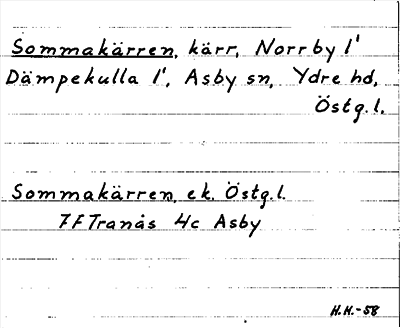 Sommakärren, kärr, Norrby 1'
Dämpekulla 1', Asby sn, Ydre hd,
Östg.l.
Sommakärren, ek. Östg.l.
7F Tranås 4c Asby
H.H.-58